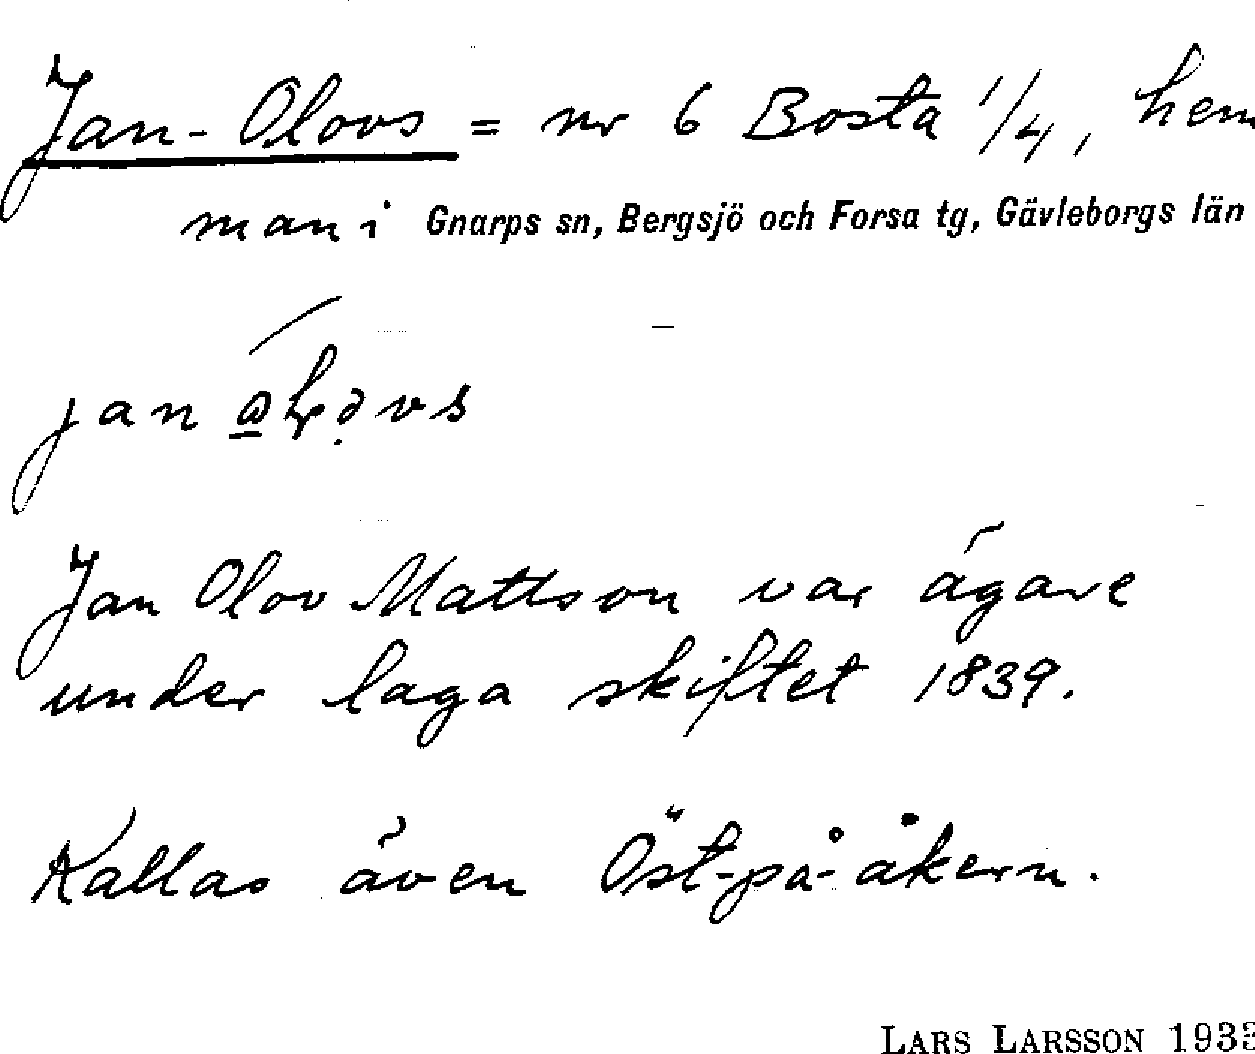 Jan-Olovs = nr 6 Bosta 1/4, hem
man i Gnarps sn, Bergsjö och Forsa tg, Gävleborgs län
jan
Jan Olov Mattson var ägare
under laga skiftet 1839.
Kallas även Öst-på-åkern.
LARS LARSSON 193